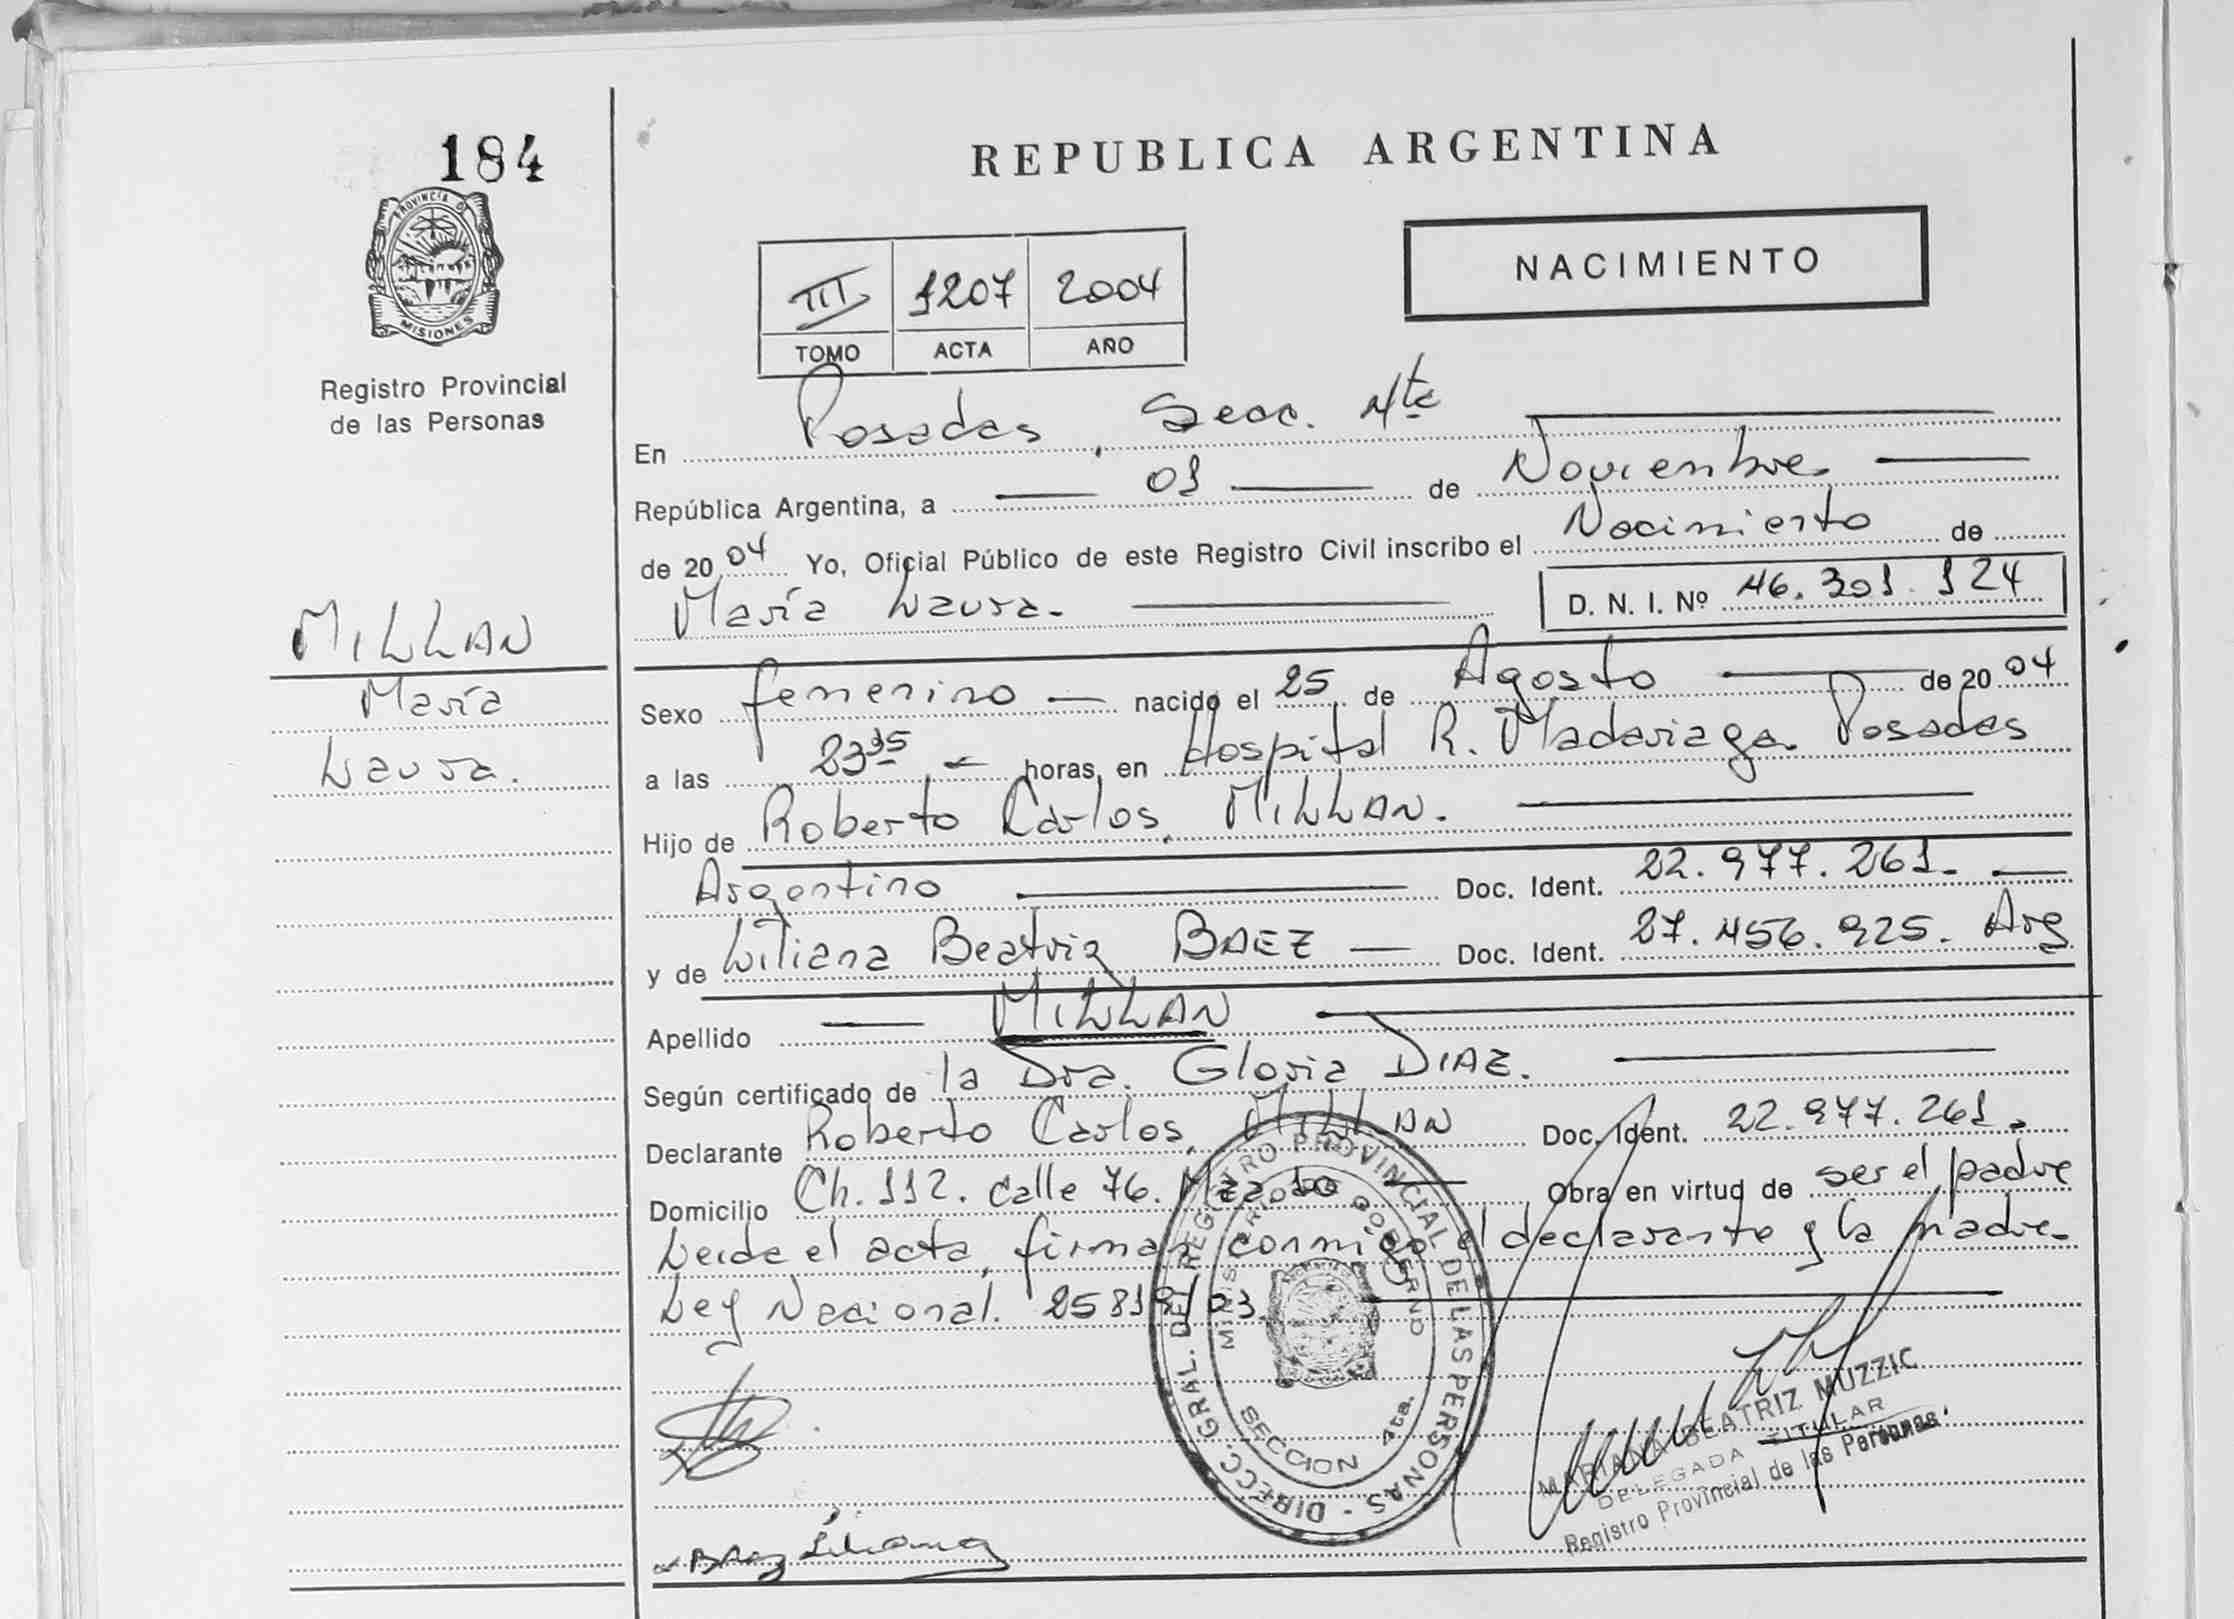 184
PROVINCIA D
MISIONES
Registro Provincial
de las Personas
REPUBLICA ARGENTINA
NACIMIENTO
III 1207 2004
TOMO ACTA AÑO
En Posadas, Secc. 4ta
República Argentina, a 01 de Noviembre
de 2004 Yo, Oficial Público de este Registro Civil inscribo el Nacimiento de
María Laura.
D. N. I. Nº 46.301.124
MILLAN
María
Laura.
Sexo femenino nacido el 25 de Agosto de 2004
a las 23 35 horas, en Hospital R. Madariaga Posadas
Hijo de Roberto Carlos, MILLAN.
Argentino Doc. Ident. 22.977.261.
y de Liliana Beatriz BAEZ Doc. Ident. 27.456.925. Arg
Apellido MILLAN
Según certificado de la Dra. Gloria DIAZ.
Declarante Roberto Carlos, MILLAN Doc. Ident. 22.977.261.
Domicilio Ch. 112. calle 76. Mza 10 Obra en virtud de ser el padre
Leida el acta, firman conmigo el declarante y la madre.
Ley Nacional. 25819/03.
DIRECC. GRAL. DEL REGISTRO PROVINCIAL DE LAS PERSONAS
MINISTERIO DE GOBIERNO
SECCION 4ta.
MARIANA BEATRIZ MUZZIC
DELEGADA TITULAR
Registro Provincial de las Personas
Baez Liliana